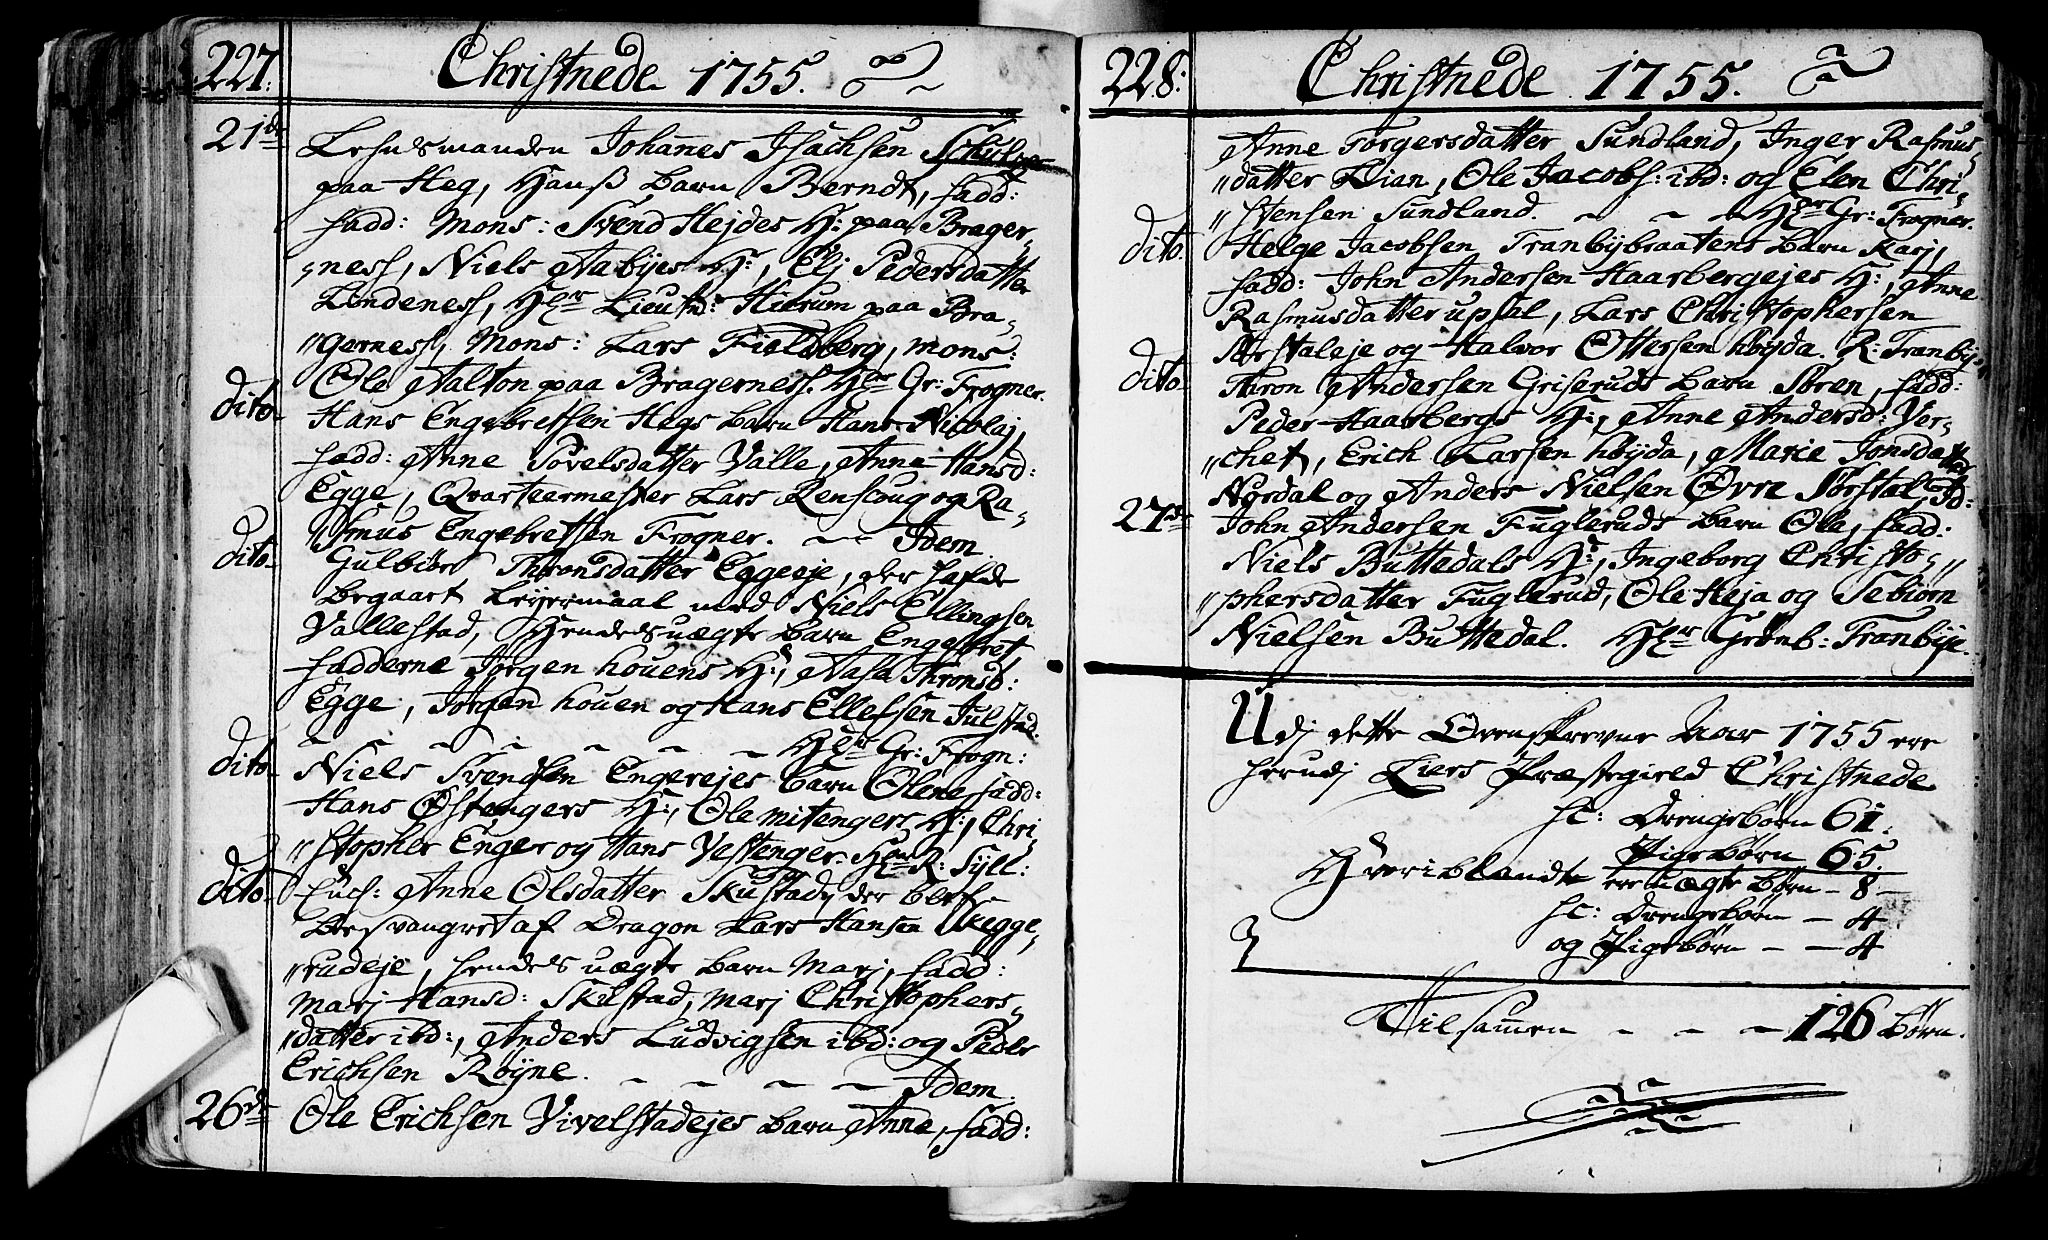 227. Christnede 1755.
21de Lehnsmanden Johannes Isachsen Schulze
paa Heg, Hanß barn Berndt, fadd:
fadd: Mons: Svend Hejdes H: paa Brager-
"ness, Niels Aabyes H:, Elj Pedersdatter
Lindeness, Hr Lieutn: Hierum paa Bra-
"gerness, Mons: Lars Fieldberg, mons:
Ole Aalton paa Bragerness. Hr Gr: Frogner.
dito. Hans Engebretsen Hegs barn Hans Nicolaj
fadd: Anne Povelsdatter Valle, Anne Hansd:
Egge, Qvarteermester Lars Renscoug og Ra-
"smus Engebretsen Frogner. Idem.
dito. Gulbiør Thronsdatter Eggeeje, der hafde
begaaet Leyermaal med Niels Ellingsen
Vallestad, Hendes uægte barn Engebret,
fadderne Jørgen houens H:, Aase Thronsd:
Egge, Jørgen houen og Hans Ellefsen Julstad.
Hr Gr: Frogn:
dito. Niels Svendsen Engerejes barn Olene, fadd:
Hans Østengers H:, Ole mitengers H:, Chri-
"stopher Enger og Hans Vestenger. Hr R: Syll:
dito. Anne Olsdatter Skustad, der blef
besvangret af Dragon Lars Hansen Skegge-
"rudeje, hendes uægte barn Marj, fadd:
Marj Hansd: Skustad, Marj Christophers-
"datter ibd:, Anders Ludvigsen ibd: og Peder
Erichsen Røyne. Idem.
26de Ole Erichsen Vivelstadejes barn Anne, fadd:
228: Christnede 1755.
Anne Torgersdatter Sundland, Inger Rasmus-
"datter Lian, Ole Jacobs: ibd: og Elen Chri-
"stensen Sundland. Hr Gr: Frogner.
dito. Helge Jacobsen Tranbybraatens barn Karj,
fadd: John Andersen Haarbergejes H:, Anne
Rasmusdatter upsal, Lars Christophersen
Nørstaleje og Halvor Ottersen høyda. R: Tranby.
dito. Thron Andersen Griseruds barn Søren, fadd:
Peder Haarbergs H:, Anne Andersd: Ver-
"chet, Erich Larsen høyda, Marie Jonsdatter
Nordal og Anders Nielsen Øvre Sørstal, Id:
27de John Andersen Fugleruds barn Ole, fadd:
Niels Buttedals H:, Ingeborg Christo-
"phersdatter Fuglerud, Ole Heja og Tebiørn
Nielsen Buttedal. Hr Grønb: Tranbye.
Udj dette Ovenskrevne Aar 1755 ere
herudj Liers Præstegield Christnede
sc: Drengebørn 61.
Pigebørn 65.
Hvoriblandt ere uægte børn - 8
sc: Drengebørn - 4
og Pigebørn - - 4
Tilsammen - - - 126 børn.